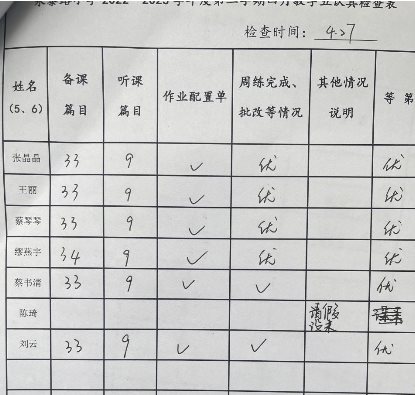 2022-2023学年度第二学期四月教学五认真检查表
检查时间：4.27
姓名（5、6） 备课篇目 听课篇目 作业配置单 周练完成、批改等情况 其他情况说明 等第
张晶晶 33 9 ✓ 优 优
王丽 33 9 ✓ 优 优
蔡琴琴 33 9 ✓ 优 优
缪燕宇 34 9 ✓ 优 优
蔡书清 33 9 ✓ ✓ 优
陈琦 请假 没来
刘云 33 9 ✓ ✓ 优